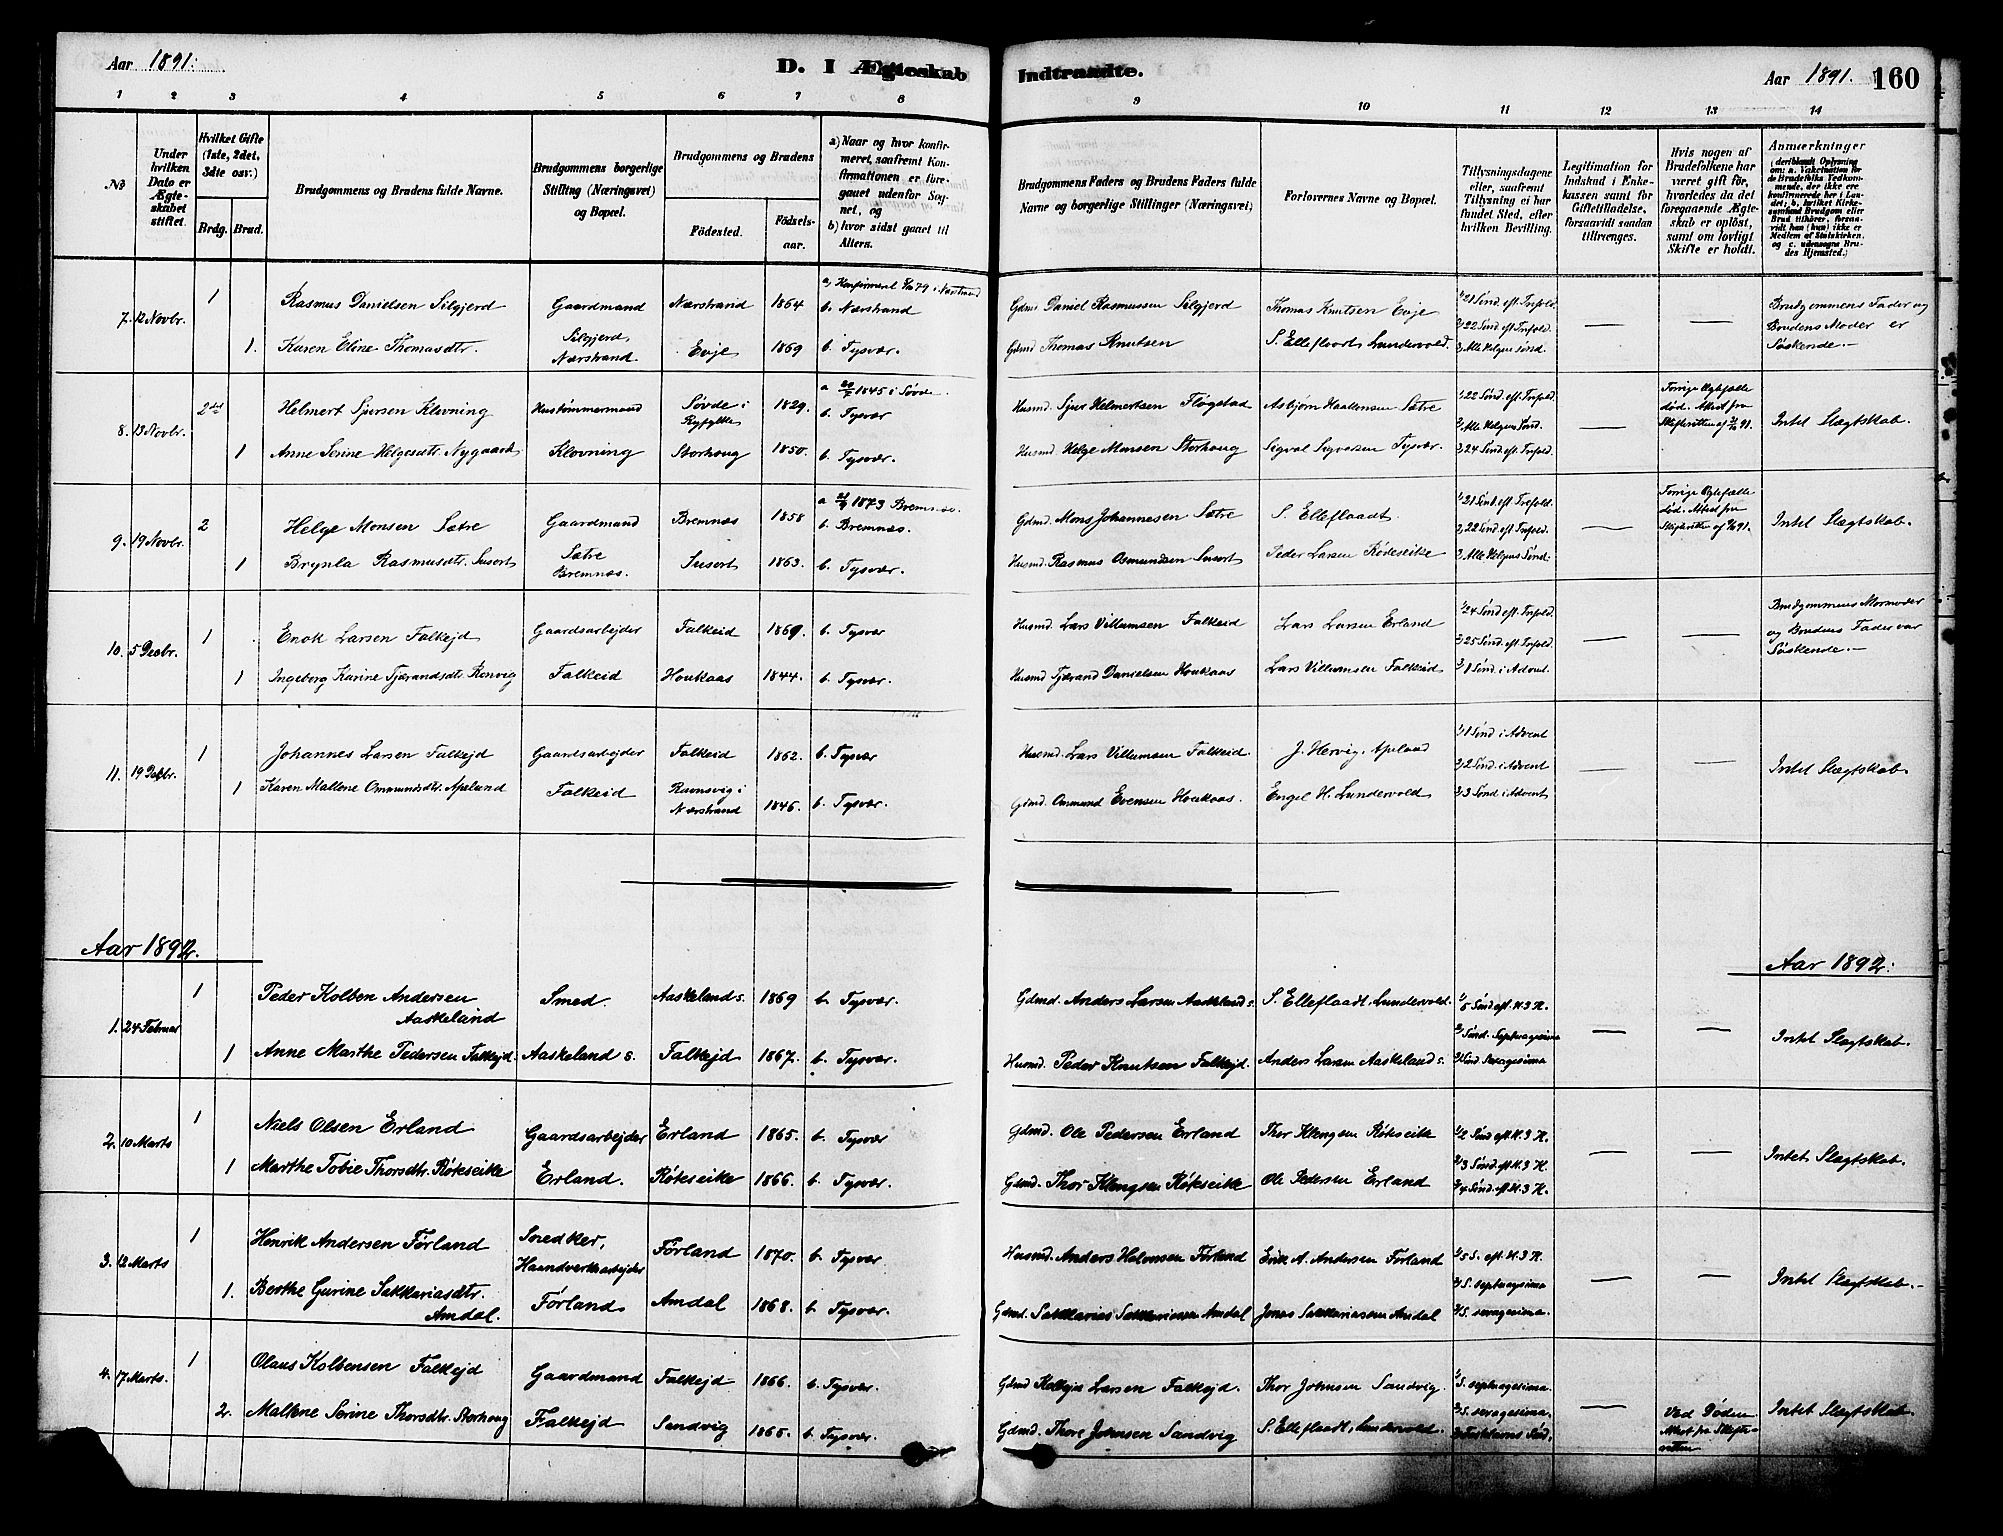 Aar 1891.
D. I Ægteskab Indtraadte.
Aar 1891. 160
1 2 3 4 5 6 7 8 9 10 11 12 13 14
No
Under hvilken Dato er Ægteskabet stiftet.
Hvilket Gifte (1ste, 2det, 3die osv.)
Brdg. Brud.
Brudgommens og Brudens fulde Navne.
Brudgommens borgerlige Stilling (Næringsvei) og Bopæl.
Brudgommens og Brudens
Födested. Födselsaar.
a) Naar og hvor konfirmeret, saafremt Konfirmationen er foregaaet udenfor Sognet, og
b) hvor sidst gaaet til Alters.
Brudgommens Faders og Brudens Faders fulde Navne og borgerlige Stillinger (Næringsvei)
Forlovernes Navne og Bopæl.
Tillysningsdagene eller, saafremt Tillysning ei har fundet Sted, efter hvilken Bevilling.
Legitimation for Indskud i Enkekassen samt for Giftetilladelse, forsaavidt saadan tiltrænges.
Hvis nogen af Brudefolkene har været gift før, hvorledes da det foregaaende Ægteskab er opløst, samt om lovligt Skifte er holdt.
Anmærkninger
(deriblandt Oplysning om: a. Vakcination for de Brudefolks Vedkommende, der ikke ere konfirmerede her i Landet; b. hvilket Kirkesamfund Brudgom eller Brud tilhører, forsaavidt han (hun) ikke er Medlem af Statskirken, og c. udensogns Brudes Hjemsted.)
7. 12 Novbr. 1 Rasmus Danielsen Silgjerd Gaardmand Nærstrand 1864 a) Konfirmeret 79 i Nærstrand b. Nærstrand Gdmd Daniel Rasmussen Silgjerd Thomas Knutsen Evje 1/21 Sønd eft Trefold. Brudgommens Fader og
2/22 Sønd eft Trefold. — — Brudens Moder er
1. Karen Eline Thomasdtr. Silgjerd, Nærstrand. Evje 1869 b. Tysvær. Gdmd Thomas Knutsen S. Elleflaadt Lundervold. 3/Alle Helgens Sønd. Søskende.—
8. 13 Novbr. 2det Helmert Sjursen Klovning Hustømmermand Søvde i Ryfylke 1829. a 1845 i Søvde b. Tysvær Husmd. Sjur Helmertsen Flogstad Asbjørn Haakensen Sætre 1/22 Sønd. eft. Trefold. Forrige Ægtefælle død. Attest fra Skifteretten af 91. Intet Slægtskab.
2/Alle Helgens Sønd. —
1 Anne Serine Helgesdtr. Nygaard Klovning Storhaug 1850. b. Tysvær. Husmd. Helge Monsen Storhaug Sigval Sigvarsen Tysvær. 3/24 Sønd eft. Trefold.
9. 19 Novbr. 2 Helge Monsen Sætre Gaardmand Bremnæs 1858 a 1873 Bremnæs. b. Bremnæs. Gdmd. Mons Johannesen Sætre S. Elleflaadt. 1/21 Sønd. eft Trefold. Forrige Ægtefælle død. Attest fra Skifteretten af 91. Intet Slægtskab.
2/22 Sønd eft Trefold. —
1 Brynla Rasmusdtr. Susort Sætre Bremnæs. Susort 1863. b. Tysvær. Husmd. Rasmus Osmundsen Susort Peder Larsen Rødseike 3/Alle Helgens Sønd.
10. 5 Decbr. 1 Enok Larsen Falkejd Gaardsarbejder Falkeid 1869. b. Tysvær Husmd. Lars Villumsen Falkeid Lars Larsen Erland 1/24 Sønd eft. Trefold. Brudgommens Mormoder
2/25 Sønd. eft Trefold. — — og Brudens Fader var
1 Ingeborg Karine Tjærandsdtr. Rønvig Falkeid Houkaas 1844. b. Tysvær. Husmd Tjærand Danielsen Houkaas Lars Villumsen Falkeid 3/1 Sønd i Advent. Søskende.—
11. 19 Decbr. 1 Johannes Larsen Falkejd Gaardsarbejder Falkeid 1862. b. Tysvær Husmd. Lars Villumsen Falkeid. J. Hervig, Apeland 1/1 Sønd i Advent
2/2 Sønd. i Advent — — Intet Slægtskab
1 Karen Mallene Ommundsdtr. Apeland Falkeid Ramsvig i Nærstrand 1846. b. Tysvær. Gdmd. Ommund Evensen Houkaas. Engel H. Lundervold 3/3 Sønd i Advent
Aar 1892. Aar 1892.
1. 24 Februar 1 Peder Kolben Andersen Aaskeland Smed. Aaskeland s. 1869 b. Tysvær. Gdmd. Anders Larsen Aaskeland s. S. Elleflaadt, Lundervold. 1/5 Sønd eft. H. 3 K.
2/Sønd. Septuagesima — — Intet Slagtskab.
1 Anne Marthe Pedersen Falkejd. Aaskeland s. Falkejd 1867. b. Tysvær. Husmd. Peder Knutsen Falkejd. Anders Larsen Aaskeland s. 3/Sønd Sexagesima
2. 10 Marts 1 Niels Olsen Erland Gaardsarbejder Erland 1865. b. Tysvær Gdmd. Ole Pedersen Erland Thor Klengsen Røkseike 1/2 Sønd eft. H. 3 K.
2/3 Sønd. eft. H. 3 K. — — Intet Slagtskab.
1 Marthe Tobie Thorsdtr. Røkseike Erland. Røkseike 1866. b. Tysvær. Gdmd. Thor Klengsen Røkseike Ole Pedersen Erland 3/4 Sønd. eft H. 3 K.
3. 12 Marts 1 Henrik Andersen Førland Snedker, Haandverksarbejder Førland 1870. b. Tysvær Husmd. Anders Førland Erik A. Andersen Førland 1/5 S. eft. H. 3 K.
2/S. septuagesima — — Intet Slagtskab.—
1. Berthe Gurine Sakkariasdtr. Amdal. Førland Amdal 1868. b. Tysvær. Gdmd. Sakkarias Sakkariassen Amdal Jonas Sakkariassen Amdal 3/S. sexagesima.
4. 17 Marts. 1 Olaus Kolbensen Falkejd Gaardmand Falkejd 1866. b. Tysvær. Gdmd Larsen Falkejd. Thor Johnsen Sandvig. 1/S. septuagesima.
2/S. sexagesima. — Ved Døden Attest fra Skifteretten Intet Slagtskab
2. Mallene Serine Thorsdtr. Storhaug Falkejd Sandvig 1865. b. Tysvær. Gdmd. Thore Johnsen Sandvig S. Elleflaadt, Lundervold. 3/Fastelavns Sønd.